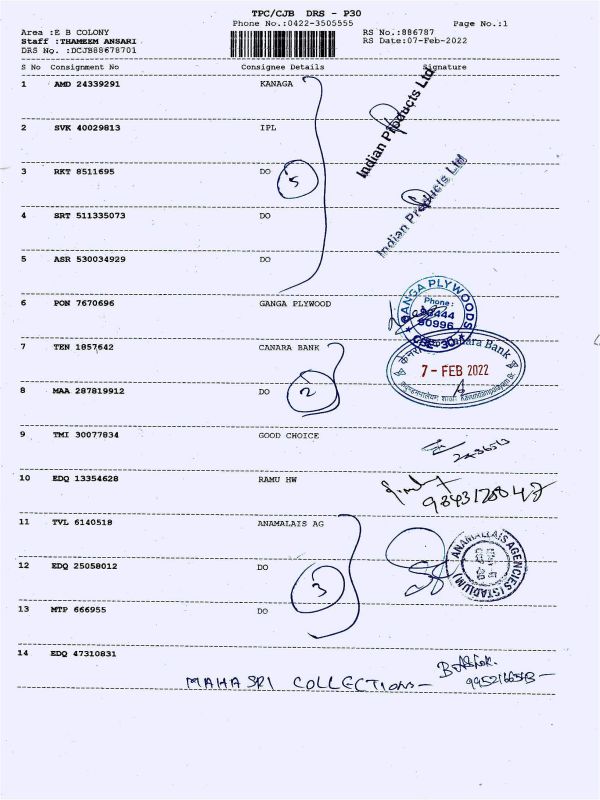 TPC/CJB DRS - P30
Phone No.:0422-3505555 Page No.:1
Area :E B COLONY RS No.:886787
Staff :THAMEEM ANSARI RS Date:07-Feb-2022
DRS No. :DCJB88678701
S No Consignment No Consignee Details Signature
1 AMD 24339291 KANAGA
Indian Products Ltd
2 SVK 40029813 IPL
3 RKT 8511695 DO
5
Indian Products Ltd
4 SRT 511335073 DO
5 ASR 530034929 DO
6 PON 7670696 GANGA PLYWOOD
GANGA PLYWOODS
Phone:
90996
CBE-30
7 TEN 1857642 CANARA BANK
Canara Bank
7 - FEB 2022
8 MAA 287819912 DO
2
9 TMI 30077834 GOOD CHOICE
10 EDQ 13354628 RAMU HW
11 TVL 6140518 ANAMALAIS AG
ANAMALLAIS AGENCIES (STADIUM)
12 EDQ 25058012 DO
3
13 MTP 666955 DO
14 EDQ 47310831
MAHA SRI COLLECTIONS
B. Ashok.